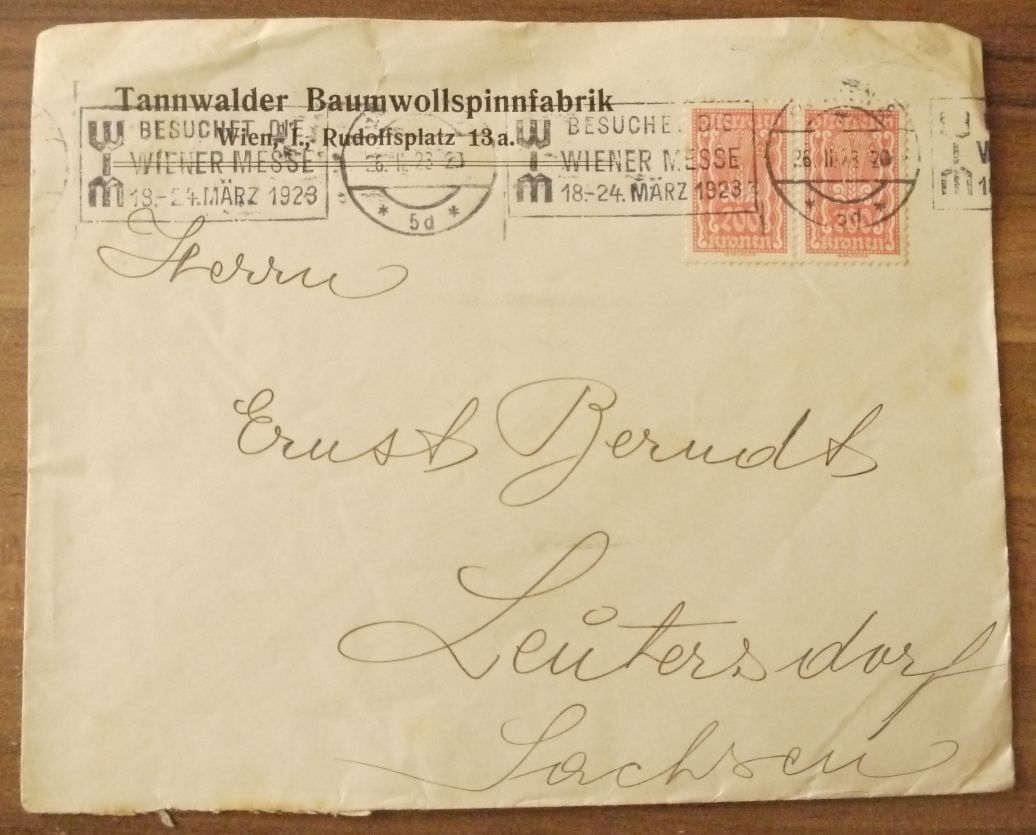 Tannwalder Baumwollspinnfabrik
Wien, I., Rudolfsplatz 13 a.
WIM
BESUCHET DIE
WIENER MESSE
18.-24. MÄRZ 1923
26. II. 23 20
* 5d *
WIM
BESUCHET DIE
WIENER MESSE
18-24. MÄRZ 1923
26 II 23 20
* 5d *
200
kronen
kronen
Herrn
Ernst Berndt
Leutersdorf
Sachsen